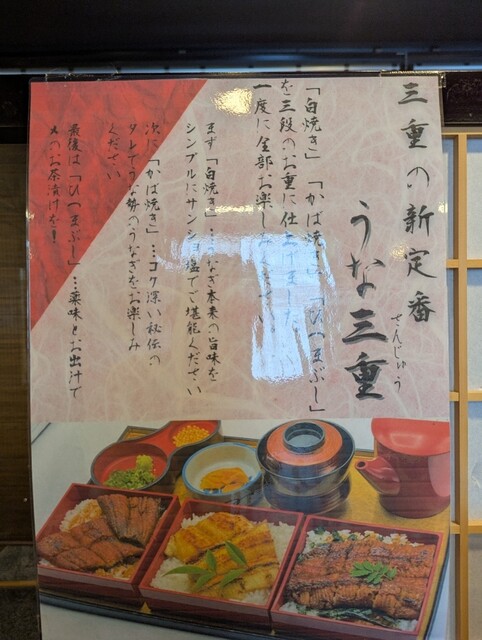 三重の新定番
うな三重
さんじゅう
「白焼き」「かば焼き」「ひつまぶし」
を三段のお重に仕上げました
一度に全部お楽しみください
まず「白焼き」…うなぎ本来の旨味を
シンプルにサンショ塩でご堪能ください
次に「かば焼き」…コク深い秘伝の
タレでうな勢のうなぎをお楽しみ
ください
最後は「ひつまぶし」…薬味とお出汁で
〆のお茶漬けを！